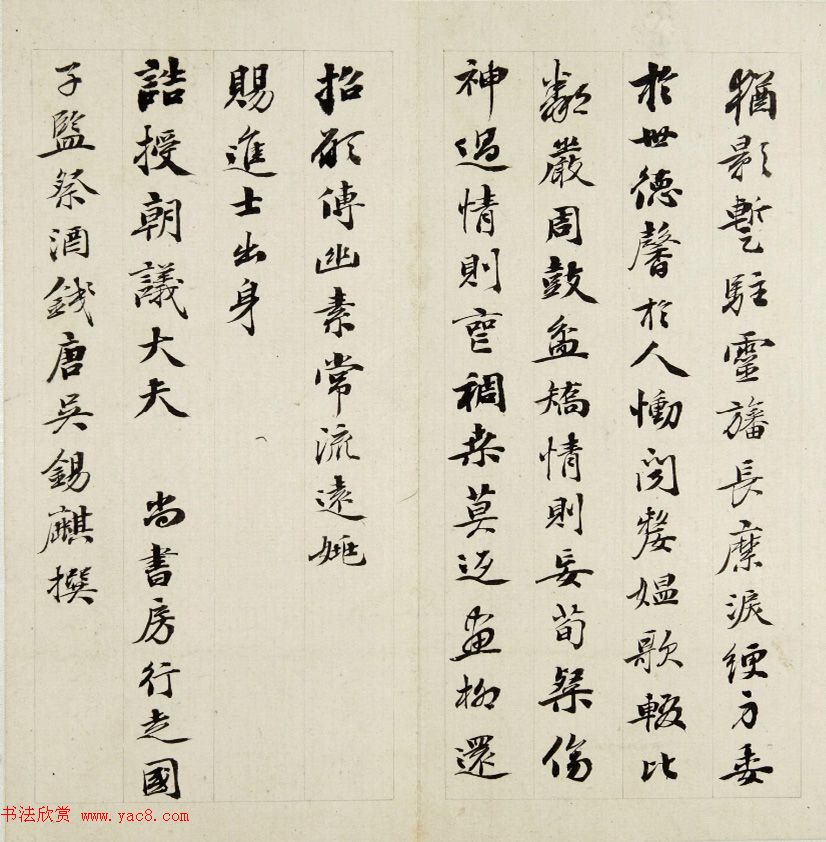 猶影暫駐靈旛長縻淚綆方委
於世德馨於人慟閔嫠媼歌輟比
鄰嚴周鼓盆矯情則妄荀粲傷
神過情則桑莫返畫柳還
招願傳幽素常流遠
賜進士出身
誥授朝議大夫 尚書房行走國
子監祭酒錢唐吳錫麒撰
书法欣赏 www.yac8.com